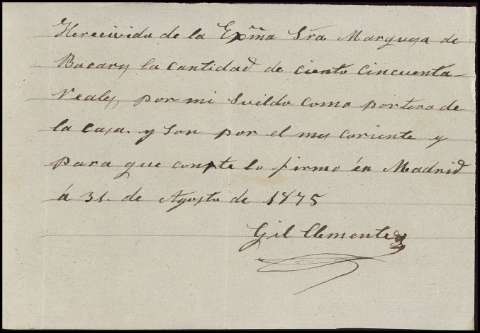 He recivido de la Exma Sra Marquesa de
Bacares la cantidad de ciento cincuenta
reales, por mi sueldo como portero de
la casa. y son por el mes coriente y
para que conste lo firmo én Madrid
á 31. de Agosto de 1875
Gil Clemente